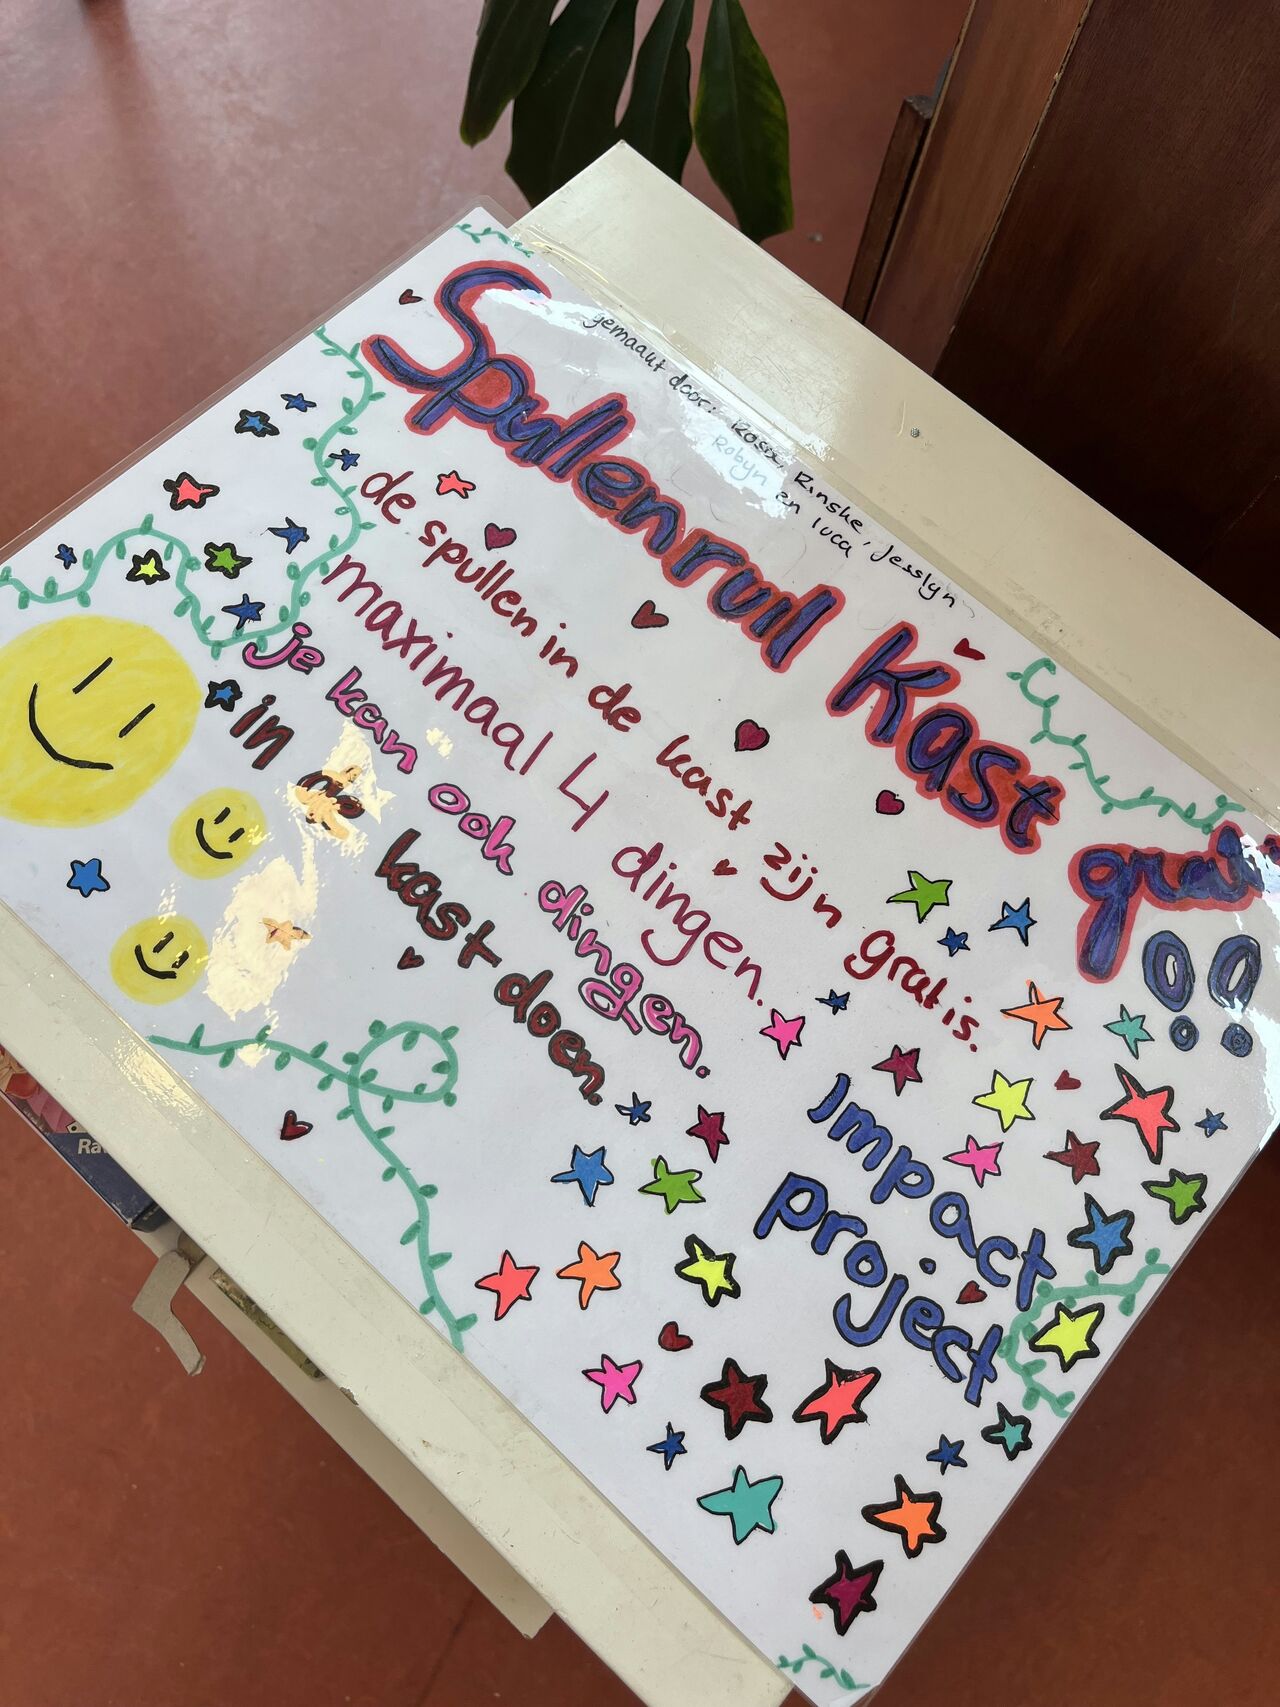 gemaakt door: Rosa, Rinske, Jesslyn
Robyn en luca
Spullenruil Kast
!!
de spullen in de kast zijn gratis.
maximaal 4 dingen.
je kan ook dingen.
in de kast doen.
impact
project
Ra